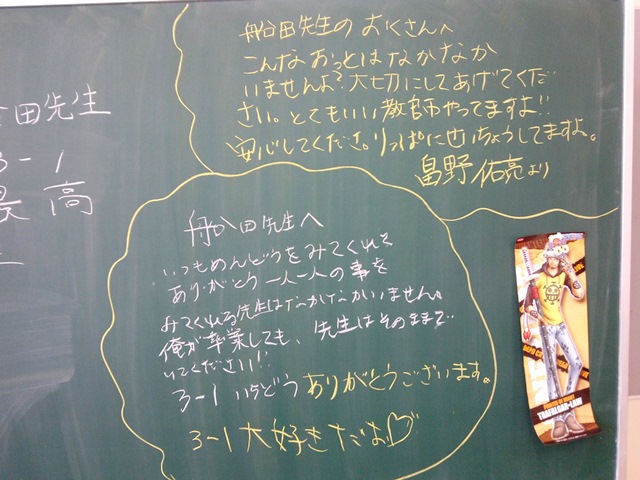 船田先生の おくさんへ
こんな おっとは なかなか
いませんよ?大切にしてあげてくだ
さい。とてもいい教師やってますよ!!
安心してくださ。りっぱにせいちょうしてますよ。
畠野 佑亮より
田先生
3-1
最高
船田先生へ
いつもめんどうをみてくれて
ありがとう一人一人の事を
みてくれる先生はなかなかいません。
俺が卒業しても、先生はそのままで
いてください!!
3-1 いちどう ありがとうございます。
3-1 大好きだよ♡
TRAFALGAR·LAW